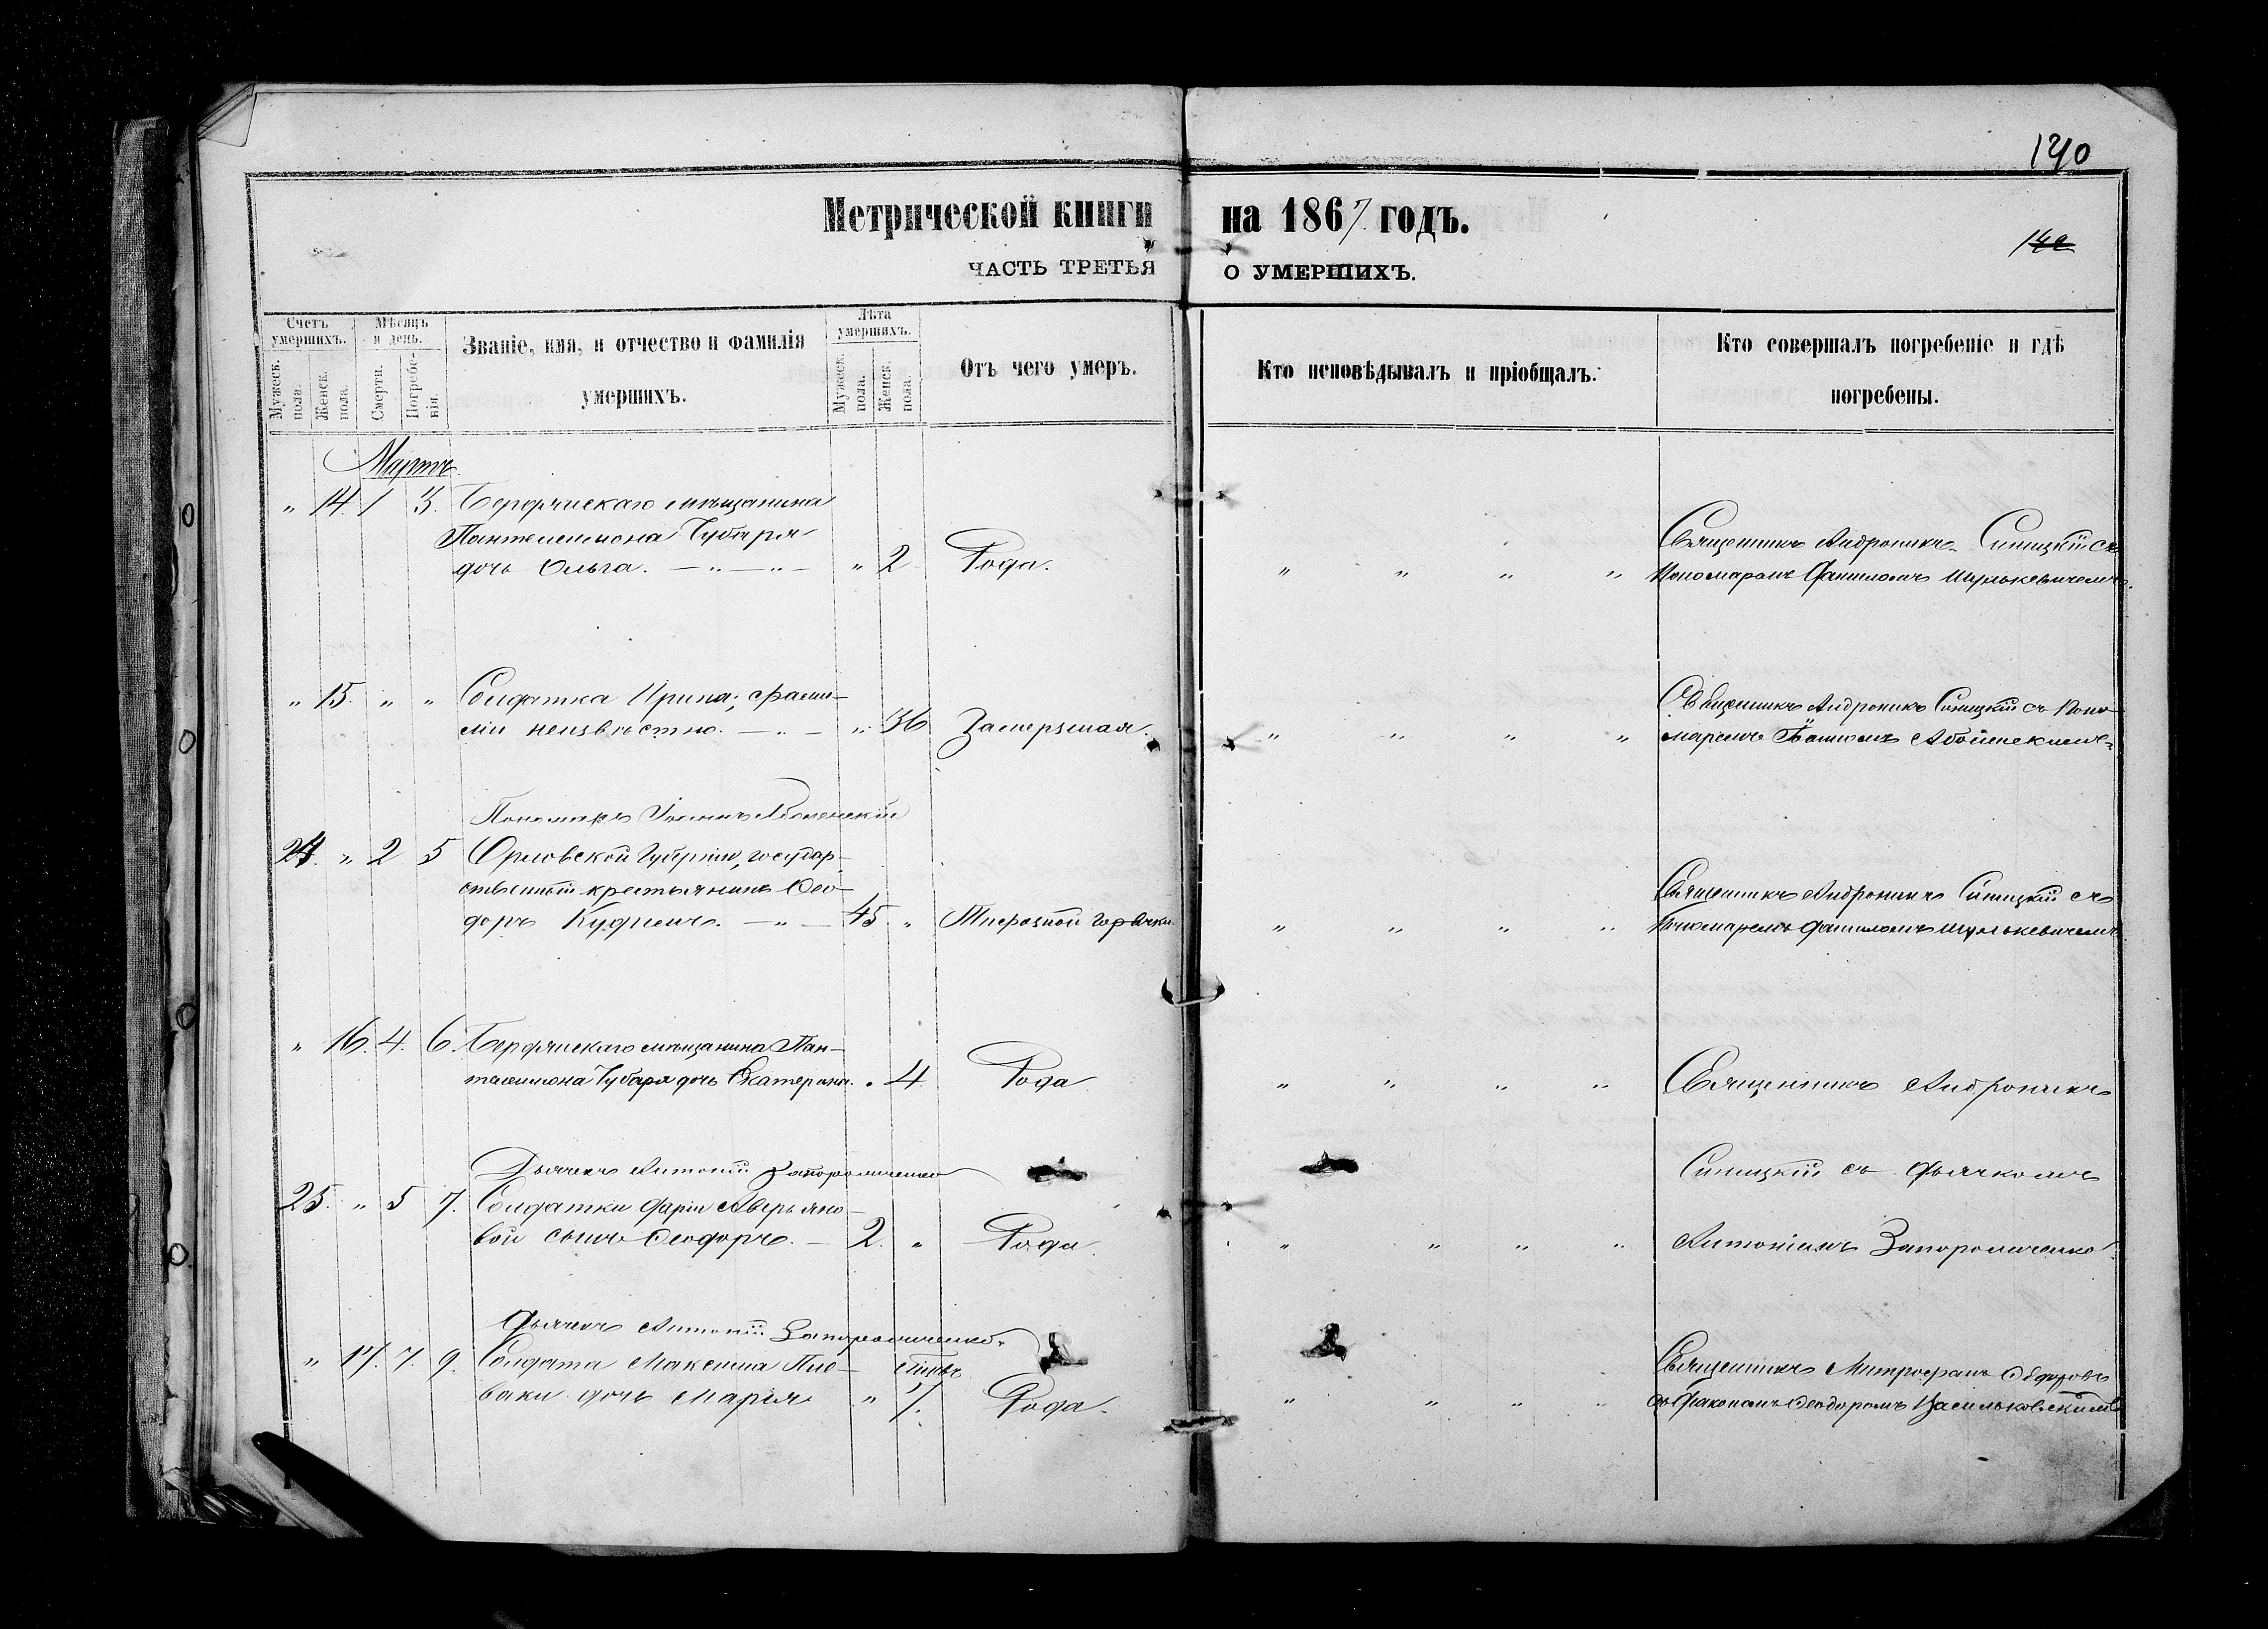 140
Метрической книги на 1867 годъ.
140
ЧАСТЬ ТРЕТЬЯ О УМЕРШИХЪ.
Счетъ умершихъ.
Мужеск. пола.
Женск. пола.
Мѣсяцъ и день.
Смерти.
Погребенія.
Званіе, имя, и отчество и фамилія
умершихъ.
Лѣта умершихъ.
Мужеск. пола.
Женск. пола.
Отъ чего умеръ.
Кто исповѣдывалъ и пріобщалъ.
Кто совершалъ погребеніе и гдѣ
погребены.
Мартъ
" 14. 1 3. Бердянскаго мѣщанина
Пантелеимона Чубаря
дочь Ольга. — " — " — " 2 Рода. " " " "
Священникъ Андроникъ Синицкій съ
Пономаремъ Даніиломъ Шулькевичемъ.
" 15. " " Солдатка Ирина; фами-
лія неизвѣстно. — " — " 36 Замерзшая. " " " "
Священникъ Андроникъ Синицкій съ Поно-
маремъ
Пономарь Іоаннъ
24. " 2 5 Орловской Губерніи, государ-
ственный крестьянинъ Ѳео-
доръ — " — 45. " горячки " " " "
Священникъ Андроникъ Синицкій съ
Пономаремъ Даніиломъ Шулькевичемъ
" 16. 4. 6. Бердянскаго мѣщанина Пан-
телеимона Чубаря дочь Екатерина. " 4 Рода " " " "
Священникъ Андроникъ
Дьячекъ Антоній Запорожченко
Синицкій съ Дьячкомъ
25. " 5 7. Солдатки Даріи Аверьяно-
вой сынъ Ѳеодоръ. — 2. " Рода. " " " "
Антоніемъ Запорожченко.
Дьячекъ Антоній Запорожченко.
" 17. 7. 9. Солдата Максима Пи-
ваки дочь Марія " 7. Рода. " " " "
Священникъ Митрофанъ
съ Діакономъ Ѳеодоромъ Васильковскимъ